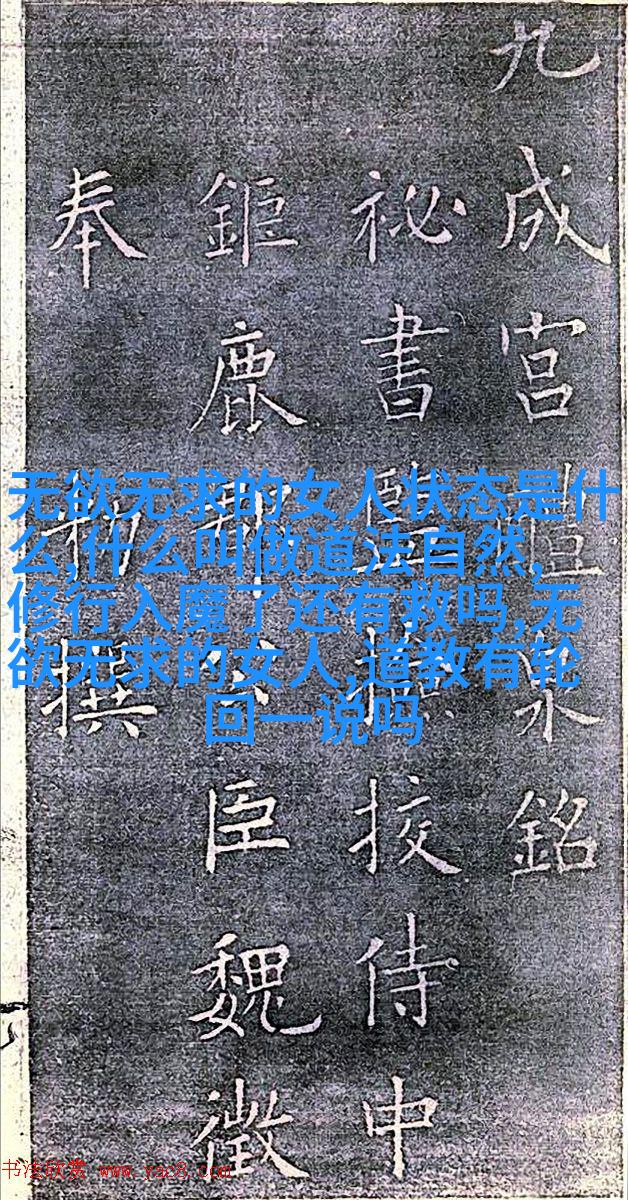 九成宮醴泉銘
祕書監撿挍侍中
鉅鹿郡公臣魏徵
奉勑撰
无欲无求的女人状态是什
么,什么叫做道法自然,
修行入魔了还有救吗,无
欲无求的女人,道教有轮
回一说吗
书法欣赏 www.yac8.com